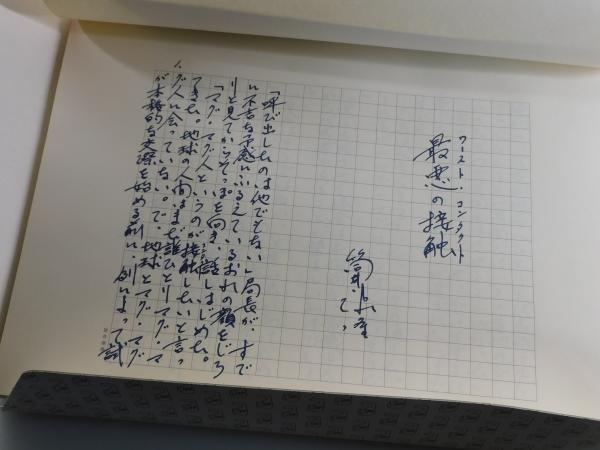 ワースト・コンタクト
最悪の接触
筒井康隆
「呼び出したのは他でもない」局長が、すで
に不吉な予感にふるえているおれの顔をじろ
りと見てからそっぽを向き、話しはじめた。
「マグ・マグ人というのが接触したいと言っ
てきた。地球の人間はまだ誰ひとりマグ・マ
グ人に会っていない。で、地球とマグ・マグ
が本格的な交際を始める前に、例によって試